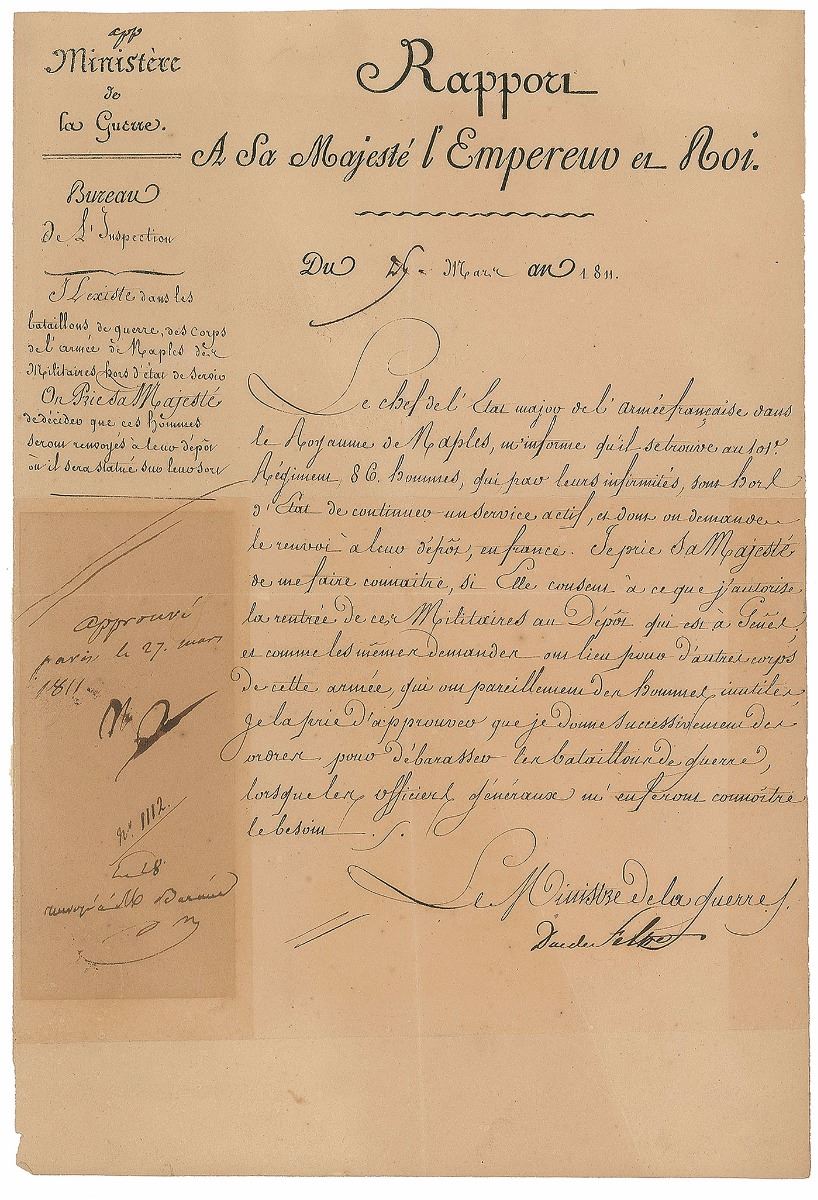 app
Ministère
de
la Guerre.
Bureau
de L'Inspection
Il existe dans les
bataillons de guerre, des corps
de l'armée de Naples des
Militaires, hors d'état de servir
On Prie Sa Majesté
de décider que ces hommes
seront renvoyés à leur dépôt
où il sera statué sur leur sort
Rapport
A Sa Majesté l'Empereur et Roi.
Du Mars an 1811.
Le chef de l'Etat major de l'armée française dans
le Royaume de Naples, m'informe qu'il se trouve au 101e.
Régiment, 86 hommes, qui par leurs infirmités, sont hors
d'Etat de continuer un service actif, et dont on demande
le renvoi à leur dépôt, en france. Je prie Sa Majesté
de me faire connaitre, si Elle consent à ce que j'autorise
la rentrée de ces Militaires au Dépôt qui est à Gênes;
et comme les mêmes demandes ont lieu pour d'autres corps
de cette armée, qui ont pareillement des hommes inutiles,
je la prie d'approuver que je donne successivement des
ordres pour débarasser les bataillons de guerre,
lorsque les officiers généraux m'en feront connoître
le besoin
Le Ministre de la guerre
Duc de Feltre
approuvé
paris le 27. mars
1811
Np
No. 1112.
Le 28
renvoyé à M